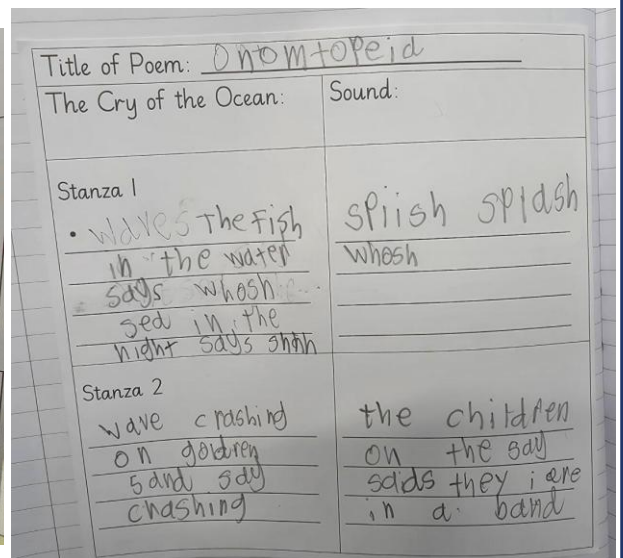 Title of Poem: Onomtopeid
The Cry of the Ocean:
Sound:
Stanza 1
• waves The Fish
in the water
says whosh
sed in the
night says shhh
spiish splash
whosh
Stanza 2
wave crashing
on goldren
sand say
crashing
the children
on the say
saids they i are
in a band